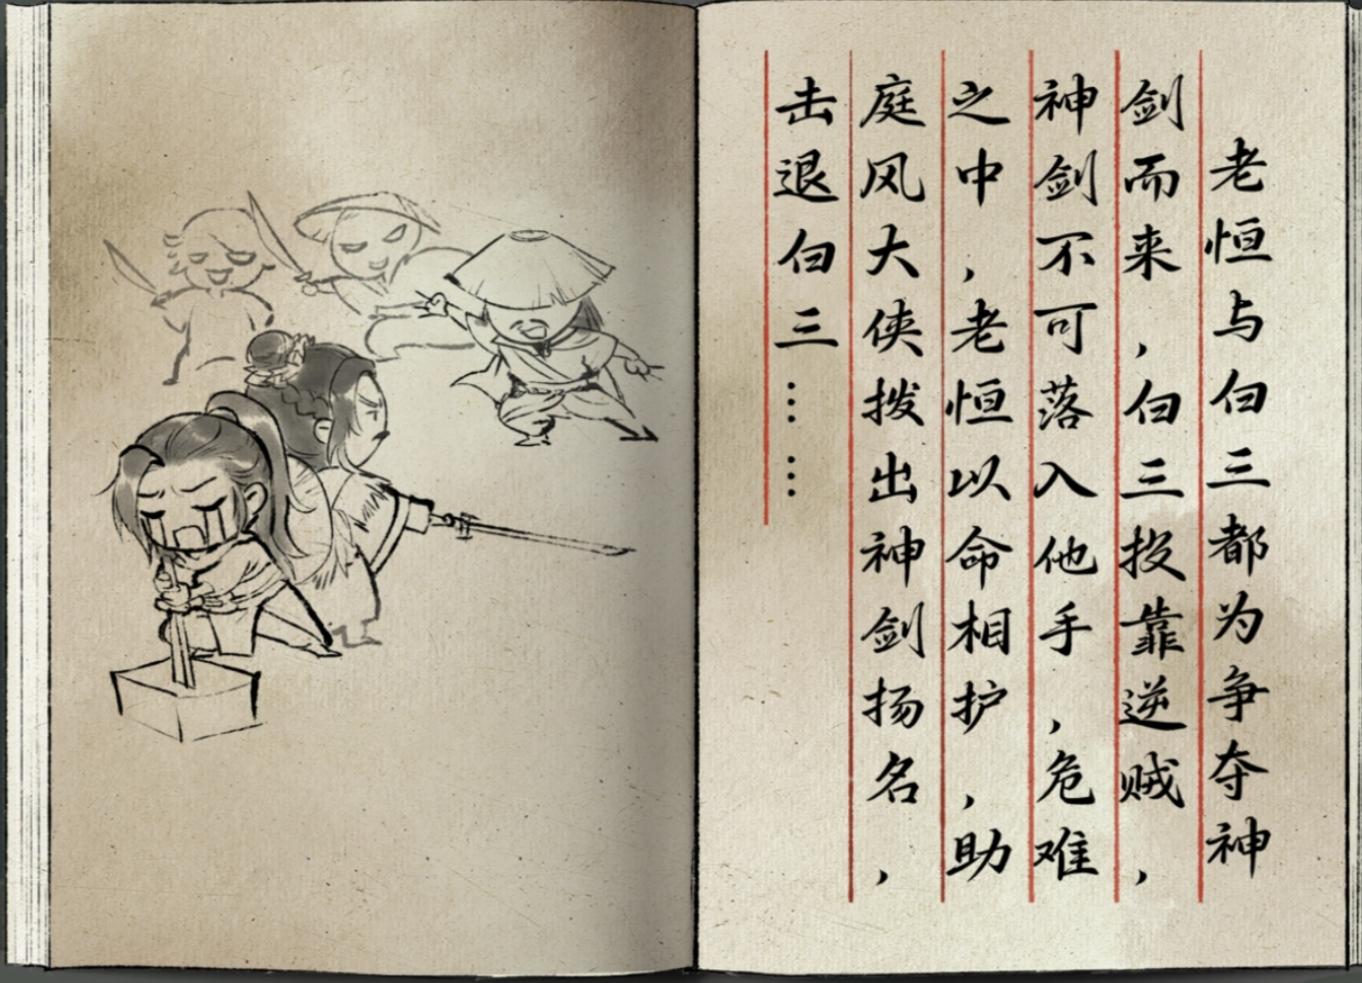 老恒与白三都为争夺神
剑而来，白三投靠逆贼，
神剑不可落入他手，危难
之中，老恒以命相护，助
庭风大侠拨出神剑扬名，
击退白三……